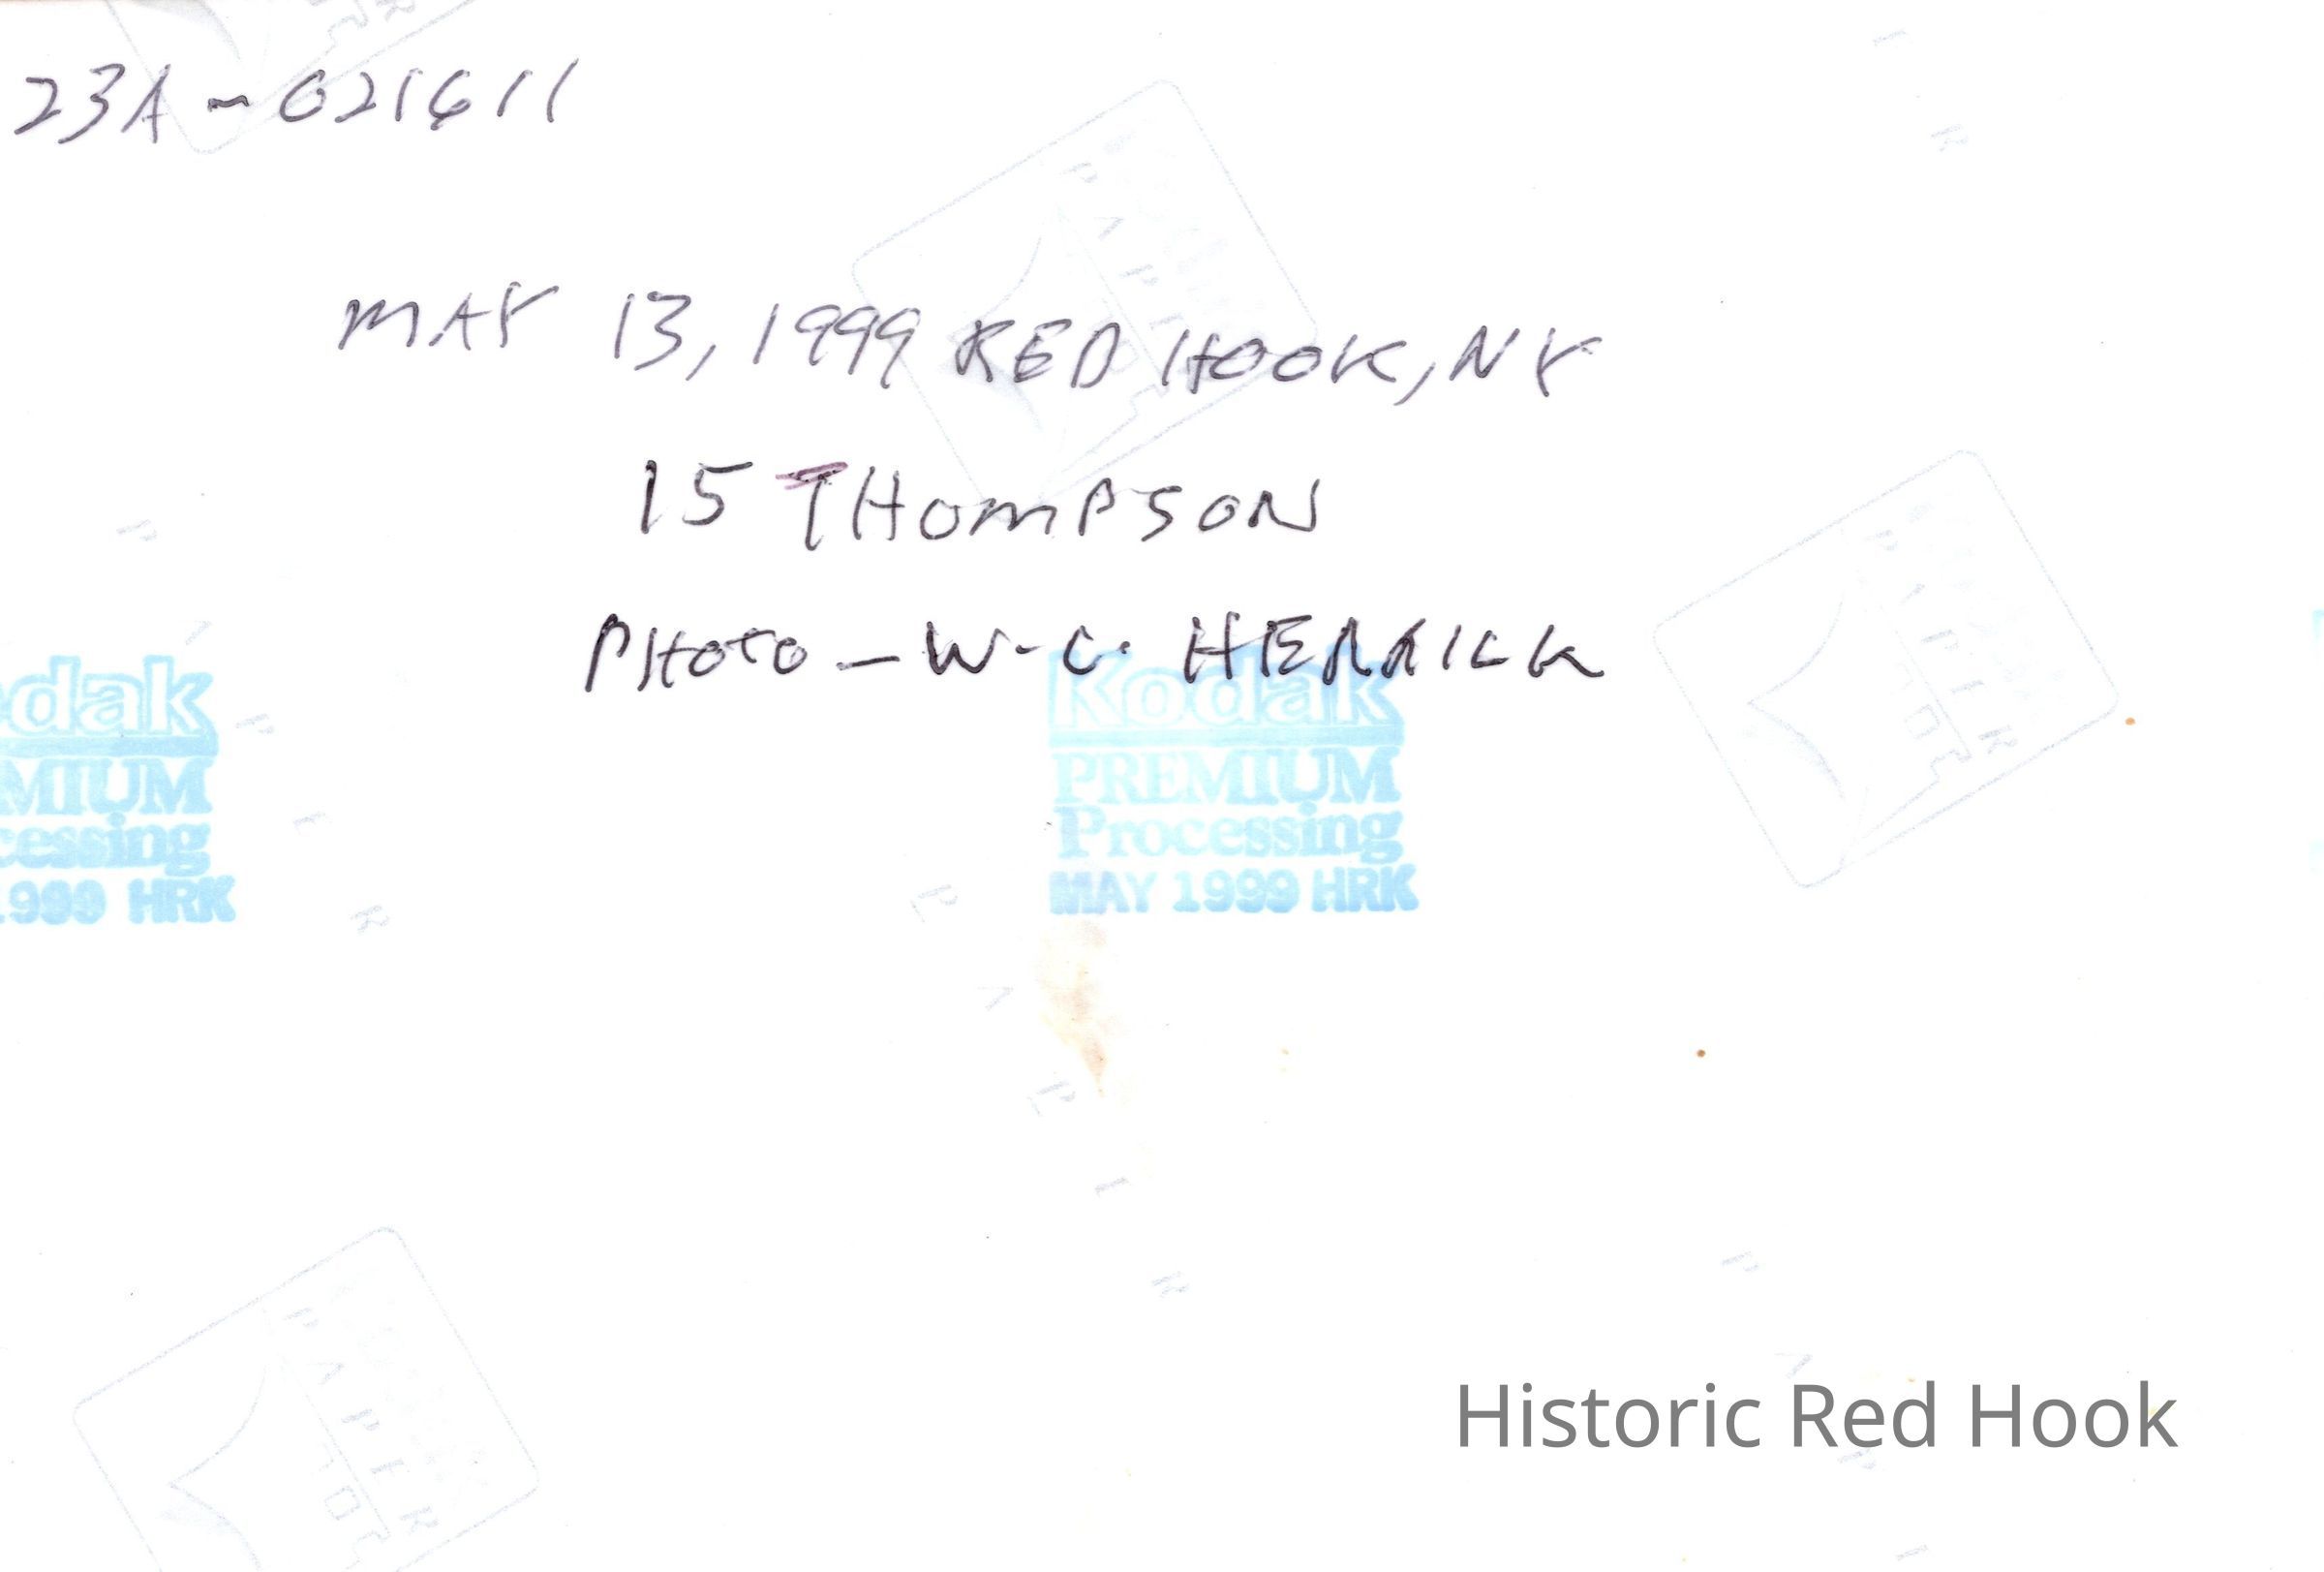 23A-021611
MAY 13, 1999 RED HOOK, NY
15 THOMPSON
PHOTO - W. C. HERRICK
dak
MIUM
cessing
1999 HRK
Kodak
PREMIUM
Processing
MAY 1999 HRK
Historic Red Hook